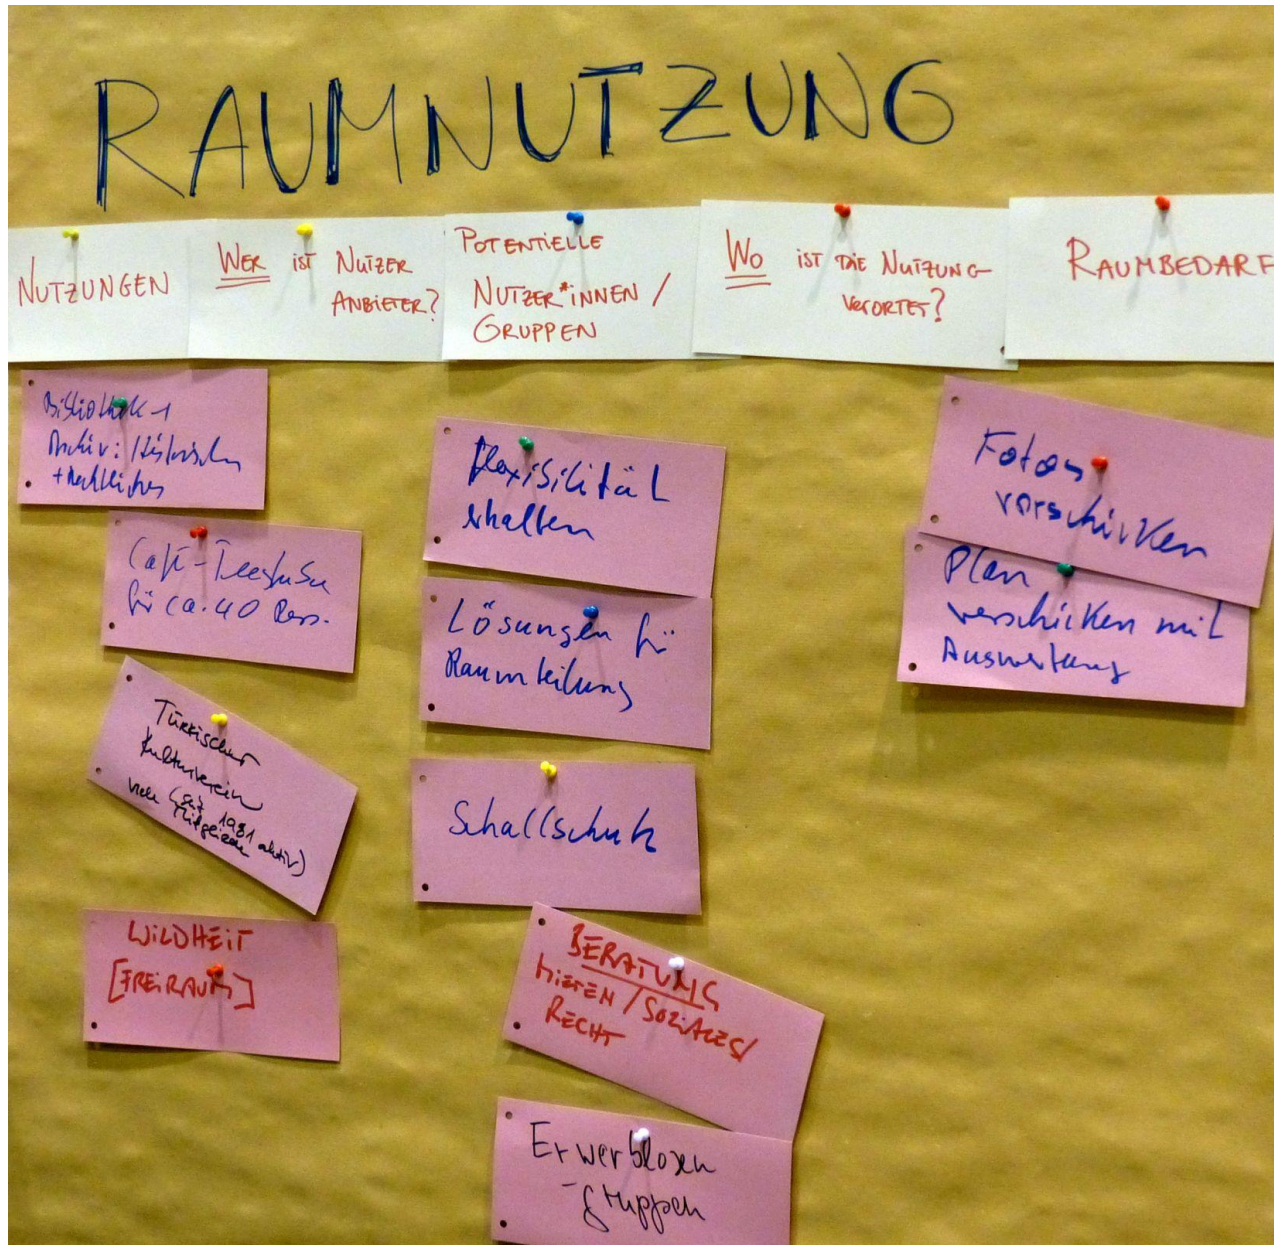 RAUMNUTZUNG
NUTZUNGEN
WER iST NUTZER
ANBIETER?
POTENTIELLE
NUTZER*iNNEN /
GRUPPEN
WO iST DiE NUTZUNG
VERORTET?
RAUMBEDARF
Bibliothek
Archiv: Historisches
+ Rechtliches
Café-Teestube
für ca. 40 Pers.
Türkischer
Kulturverein
(seit 1981 aktiv)
viele Mitglieder
WiLDHEiT
[FREiRAUM]
Flexibilität
erhalten
Lösungen für
Raumteilung
Schallschutz
BERATUNG
MiETEN / SOZiALES/
RECHT
Erwerblosen
-gruppen
Fotos
verschicken
Plan
verschicken mit
Auswertung